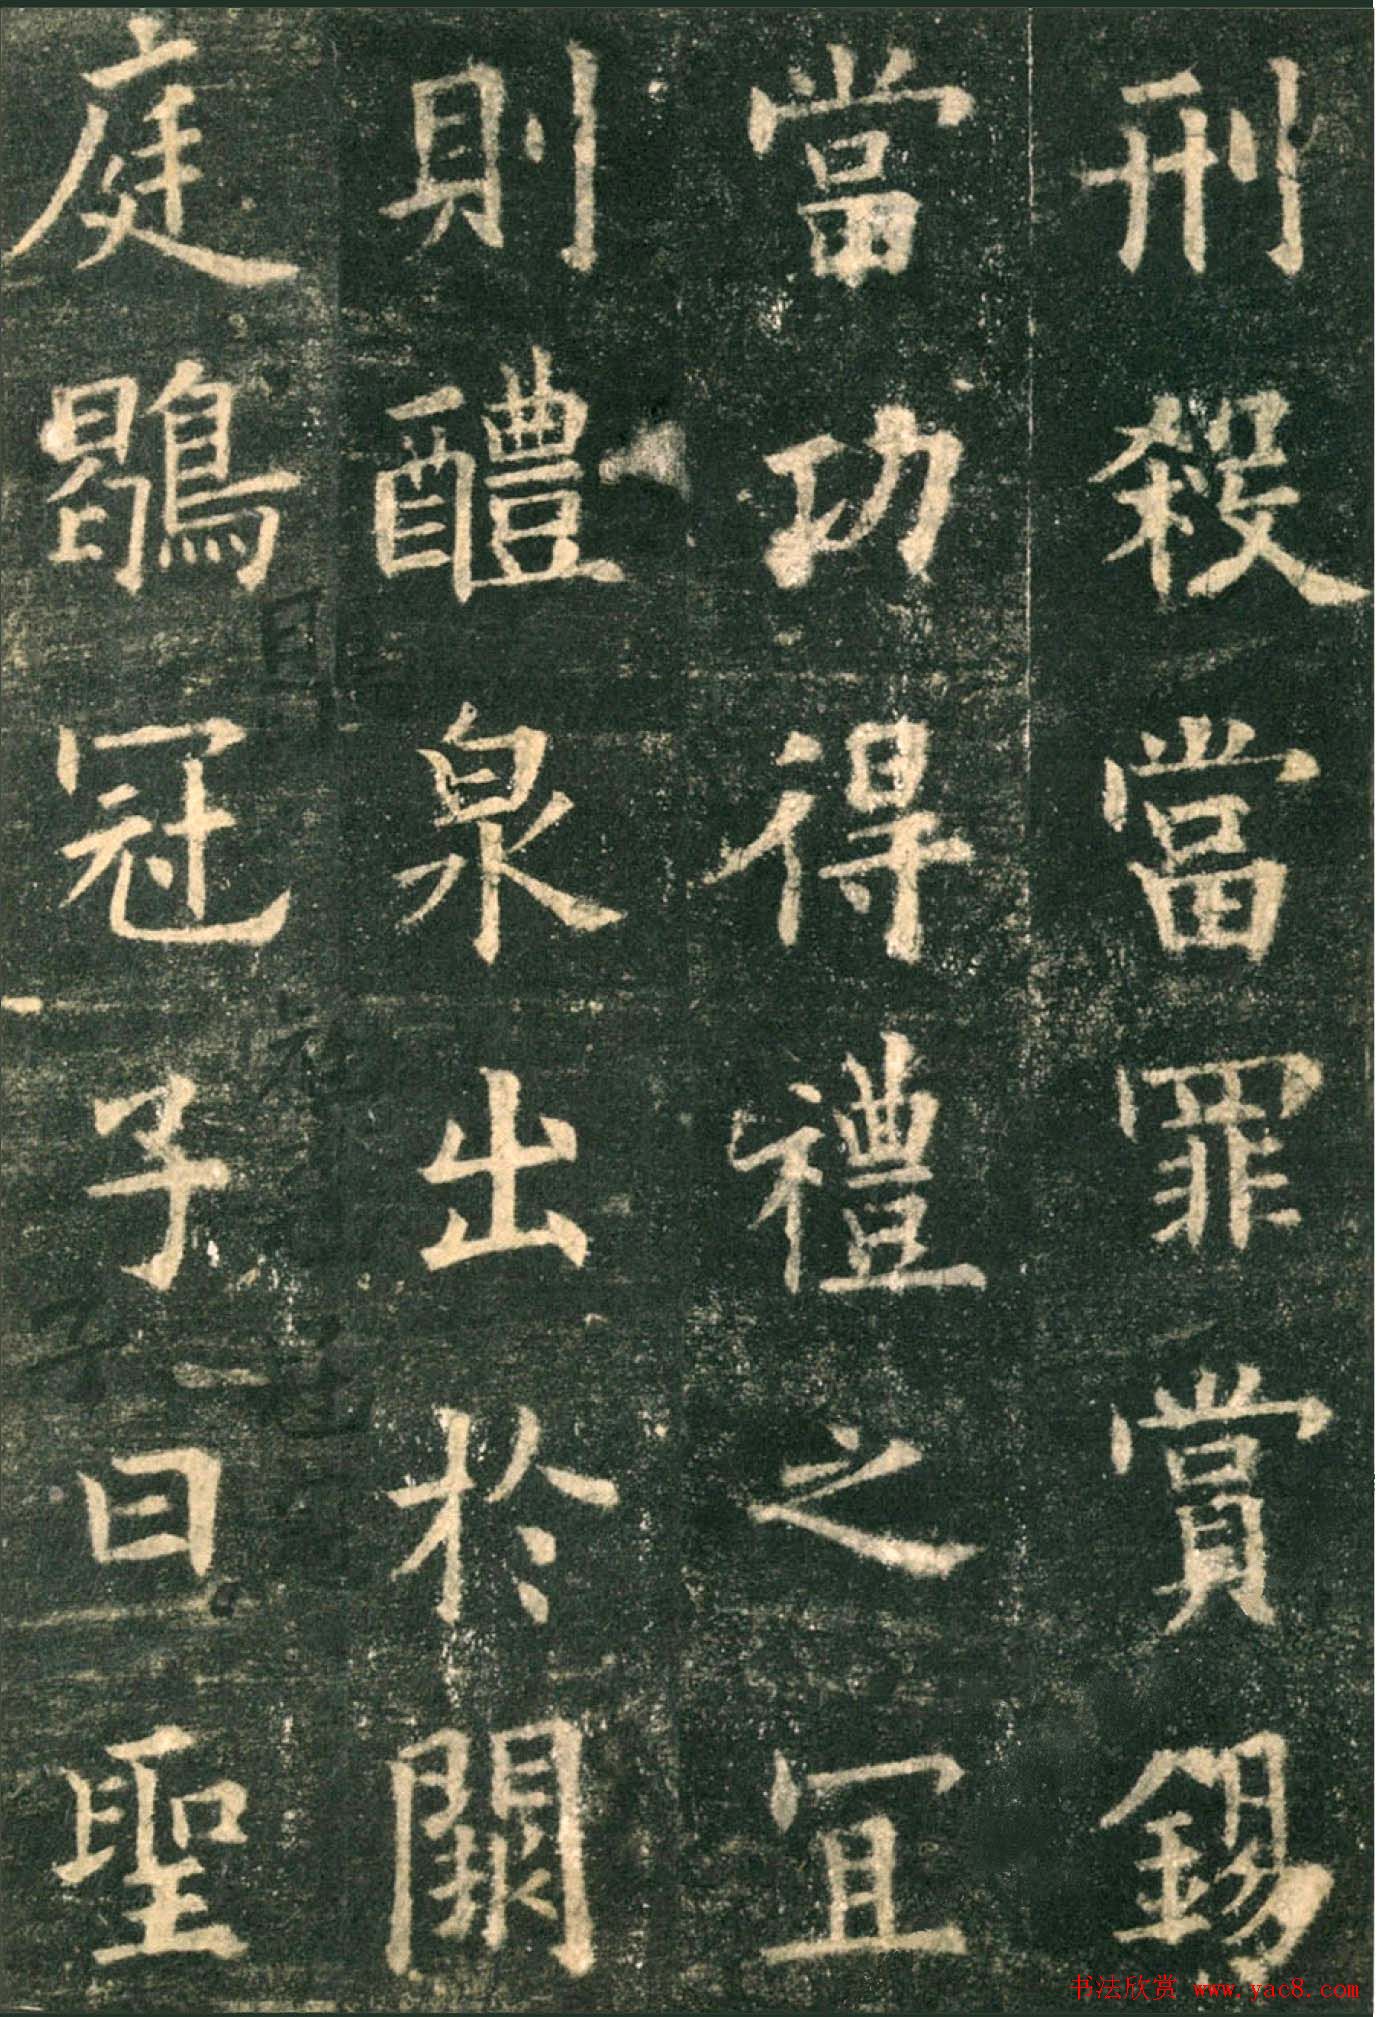 刑殺當罪賞錫
當功得禮之宜
則醴泉出於闕
庭鶡冠子曰聖
书法欣赏 www.yac8.com